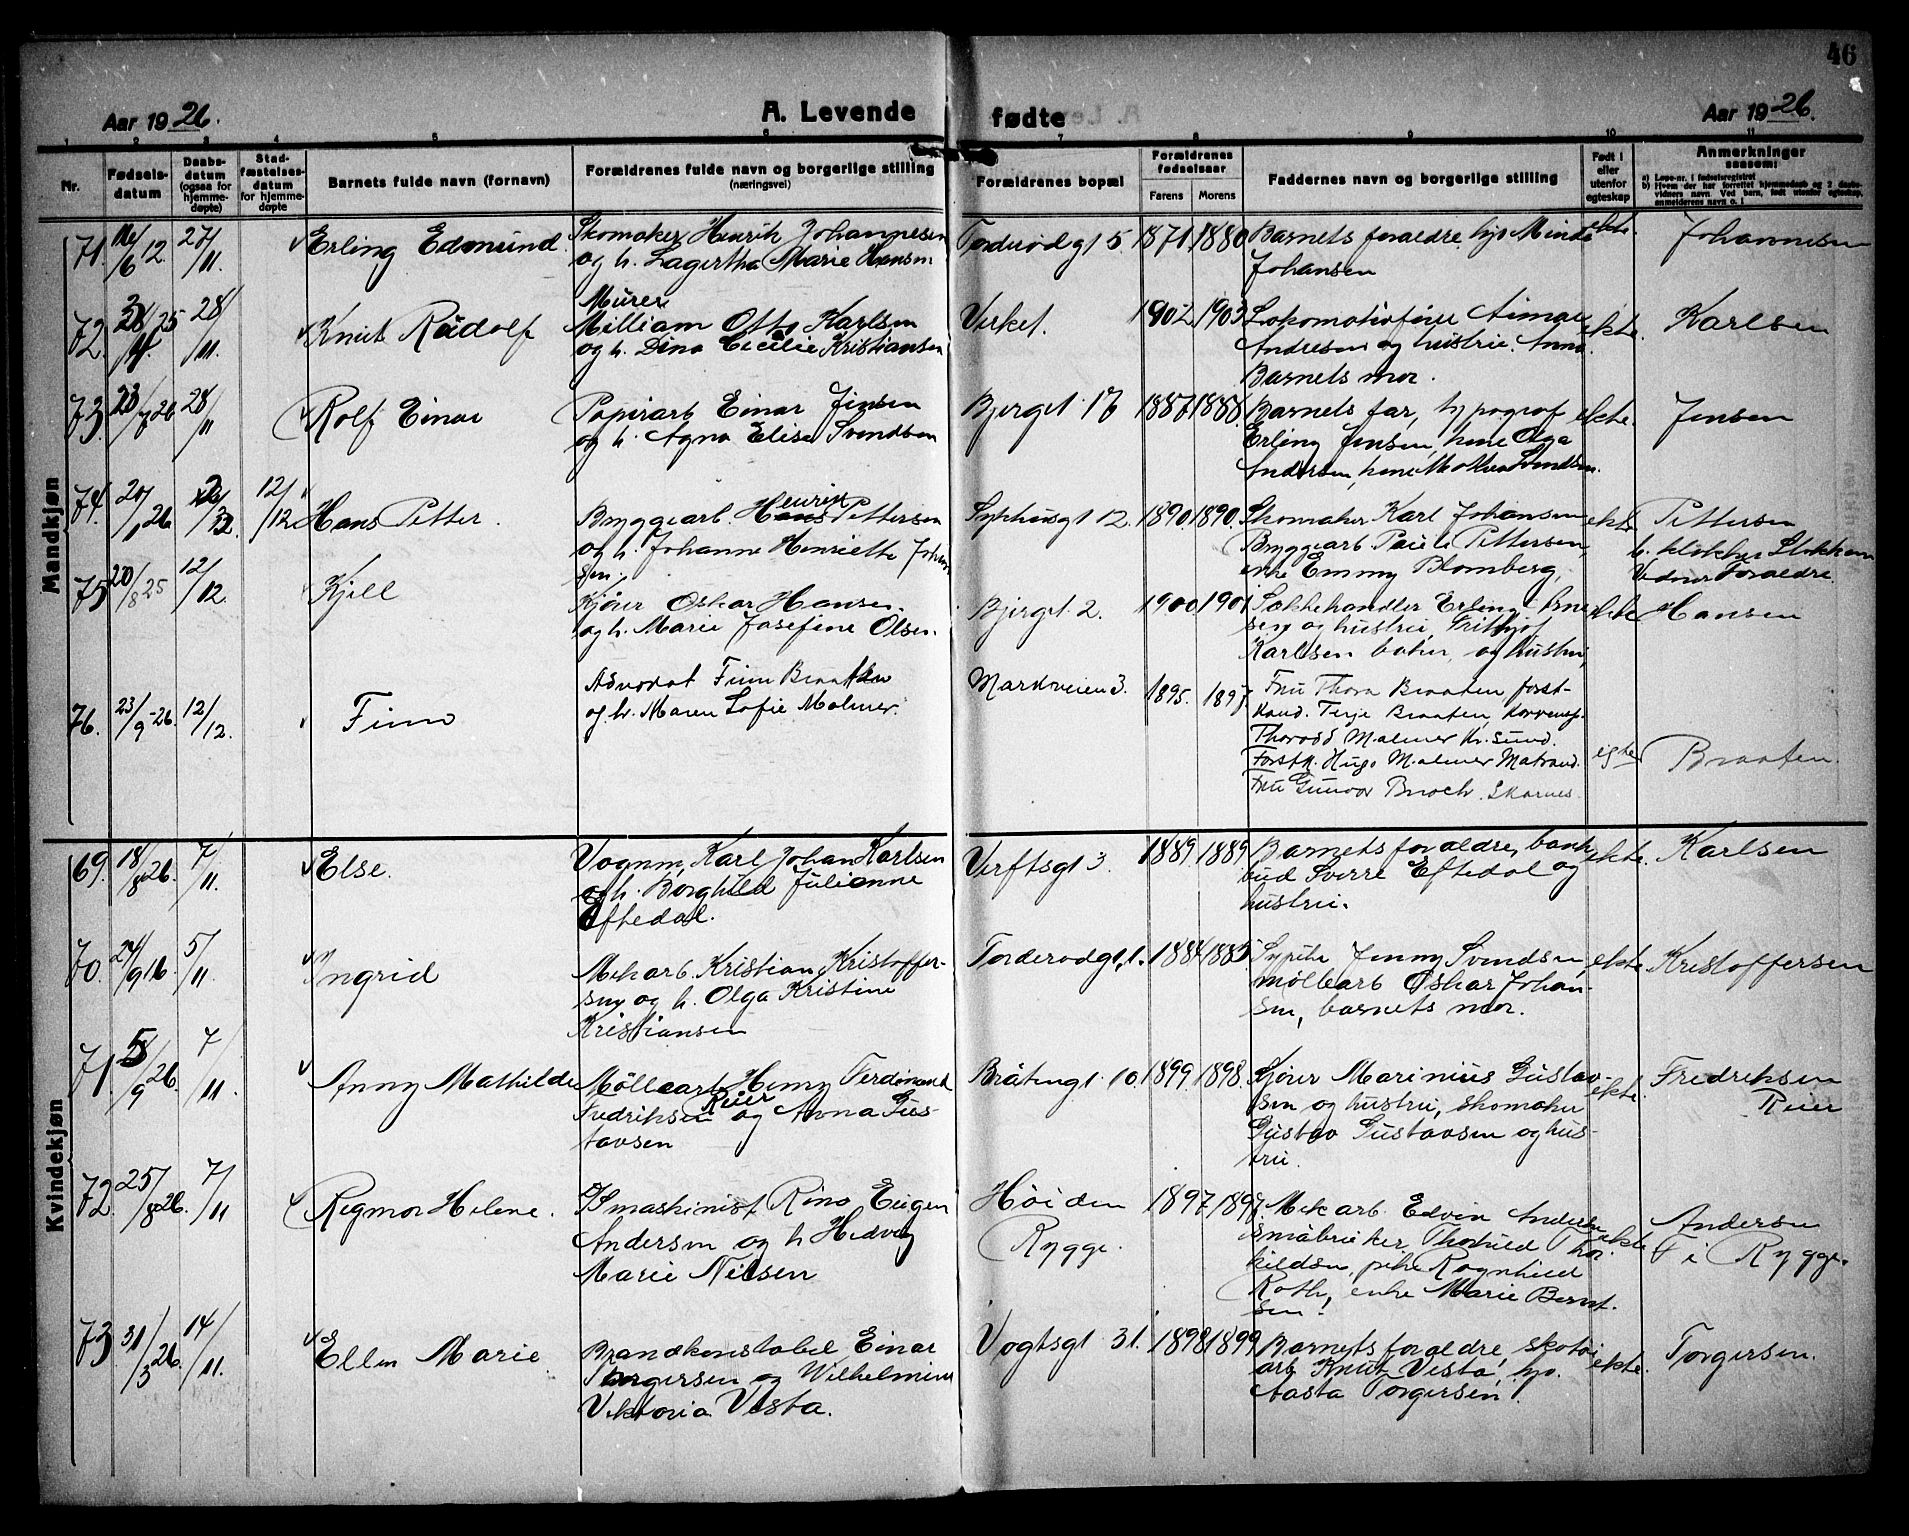 46
Aar 1926.
A. Levende fødte
Aar 1926.
1 2 3 4 5 6 7 8 9 10 11
Nr.
Fødsels-
datum
Daabs-
datum
(ogsaa for
hjemme-
døpte)
Stad-
fæstelses-
datum
for hjemme-
døpte
Barnets fulde navn (fornavn)
Forældrenes fulde navn og borgerlige stilling
(næringsvei)
Forældrenes bopæl
Forældrenes
fødselsaar
Farens Morens
Faddernes navn og borgerlige stilling
Født i
eller
utenfor
egteskap
Anmerkninger
saasom:
a) Løpe-nr. i fødselsregistret
b) Hvem der har forrettet hjemmedaab og 2 daabs-
vidners navn. Ved barn, født utenfor egteskap,
anmelderens navn o. l
Mandkjøn
71. 27/11. Erling Edmund
Skomaker Henrik Johannesen
og h. Lagertha Marie Hansen
Torderødgt 5 1871 1880
Barnets forældre, hjs Minda
Johansen
ekte. Johannesen
72. 28/11. Knut Rudolf
Murer
William Otto Karlsen
og h. Dina Cecilie Kristiansen
Verket. 1902 1903
Lokomotivfører Aimar
Andresen og hustru. Anna
Barnets mor.
ekte. Karlsen
73. 23/7 26 28/11 Rolf Einar
Papirarb Einar Jensen
og h. Agna Elise Svendsen
Bjerggt. 16 1887 1888.
Barnets far, typograf
Erling Jensen, hene Olga
Andersen,
ekte. Jensen
74. 20/1 26 12/12 Hans Petter.
Byggearb. Henrik Pettersen
og h. Johanne Henriette Johan
sen.
Syphusgt 12. 1890. 1890.
Skomaker Karl Johansen
Byggearb Paul Pettersen,
enke Emmy Blomberg,
ekte Pettersen
b. klokker Stokken
Vidner Foraldre.
75 20/8 25 12/12. Kjell
Kjører Oskar Hansen.
og h. Marie Josefine Olsen.
Bjerggt. 2. 1900 1901
Sækkehandler Erling Arne
sen og hustru, Fritjof
Karlsen baker, og hustru,
ekte Hansen
76. 23/9-26. 12/12. Finn
Advokat Finn Braaten
og h. Maren Sofie Malmer.
Markveien 3. 1895. 1897.
Fru Thora Braaten, forst-
kand. Terje Braaten,
Thorodd Malmer Kr. sund.
Forstk. Hugo Malmer Matrand.
Fru Gunvor Broch. Skarnes.
egte Braaten.
Kvindekjøn
69. 18/8 26. 7/11. Else.
Vognm, Karl Johan Karlsen
og h. Borghild Julianne
Eftedal.
Verftsgt 3. 1889 1889
Barnets forældre, bank
bud Sverre Eftedal og
hustru.
ekte. Karlsen
70. 24/9 26. 5/11 Ingrid
Mekarb. Kristian Kristoffer-
sen og h. Olga Kristine
Kristiansen
Torderødgt, 1. 1884 1885
Sypike Jenny Svendsen,
møllearb Oskar Johan-
sen, barnets mor.
ekte. Kristoffersen
71. 5/9 26. 7/11. Anny Mathilde
Møllearb Henry Ferdinand
Reier
Fredriksen og Anna Gus-
tavsen
Bråtengt 10. 1899. 1898.
Kjører Marinius Gustav-
sen og hustru, skomaker
Gustav Gustavsen og hus-
tru.
ekte. Fredriksen
Reier
72. 25/8 26. 7/11 Regmor Helene.
maskinist Rino Eugen
Andersen og h Hedvig
Marie Nilsen
Høiden
Rygge. 1897
Mekarb. Edvin Andersen
småbruker, Thorleif Thor-
kildsen, pike Ragnhild
Roth, enke Marie Bernt-
sen!
ekte Andersen
i Rygge.
73 31/3 26. 14/11. Ellen Marie.
Brandkonstabel Einar
Torgersen og Wilhelmine
Viktoria Vesta.
Vogtsgt 31. 1898 1899
Barnets forældre, skotøi
arb Knut Vesta, hjs.
Aasta Torgersen.
ekte. Torgersen.